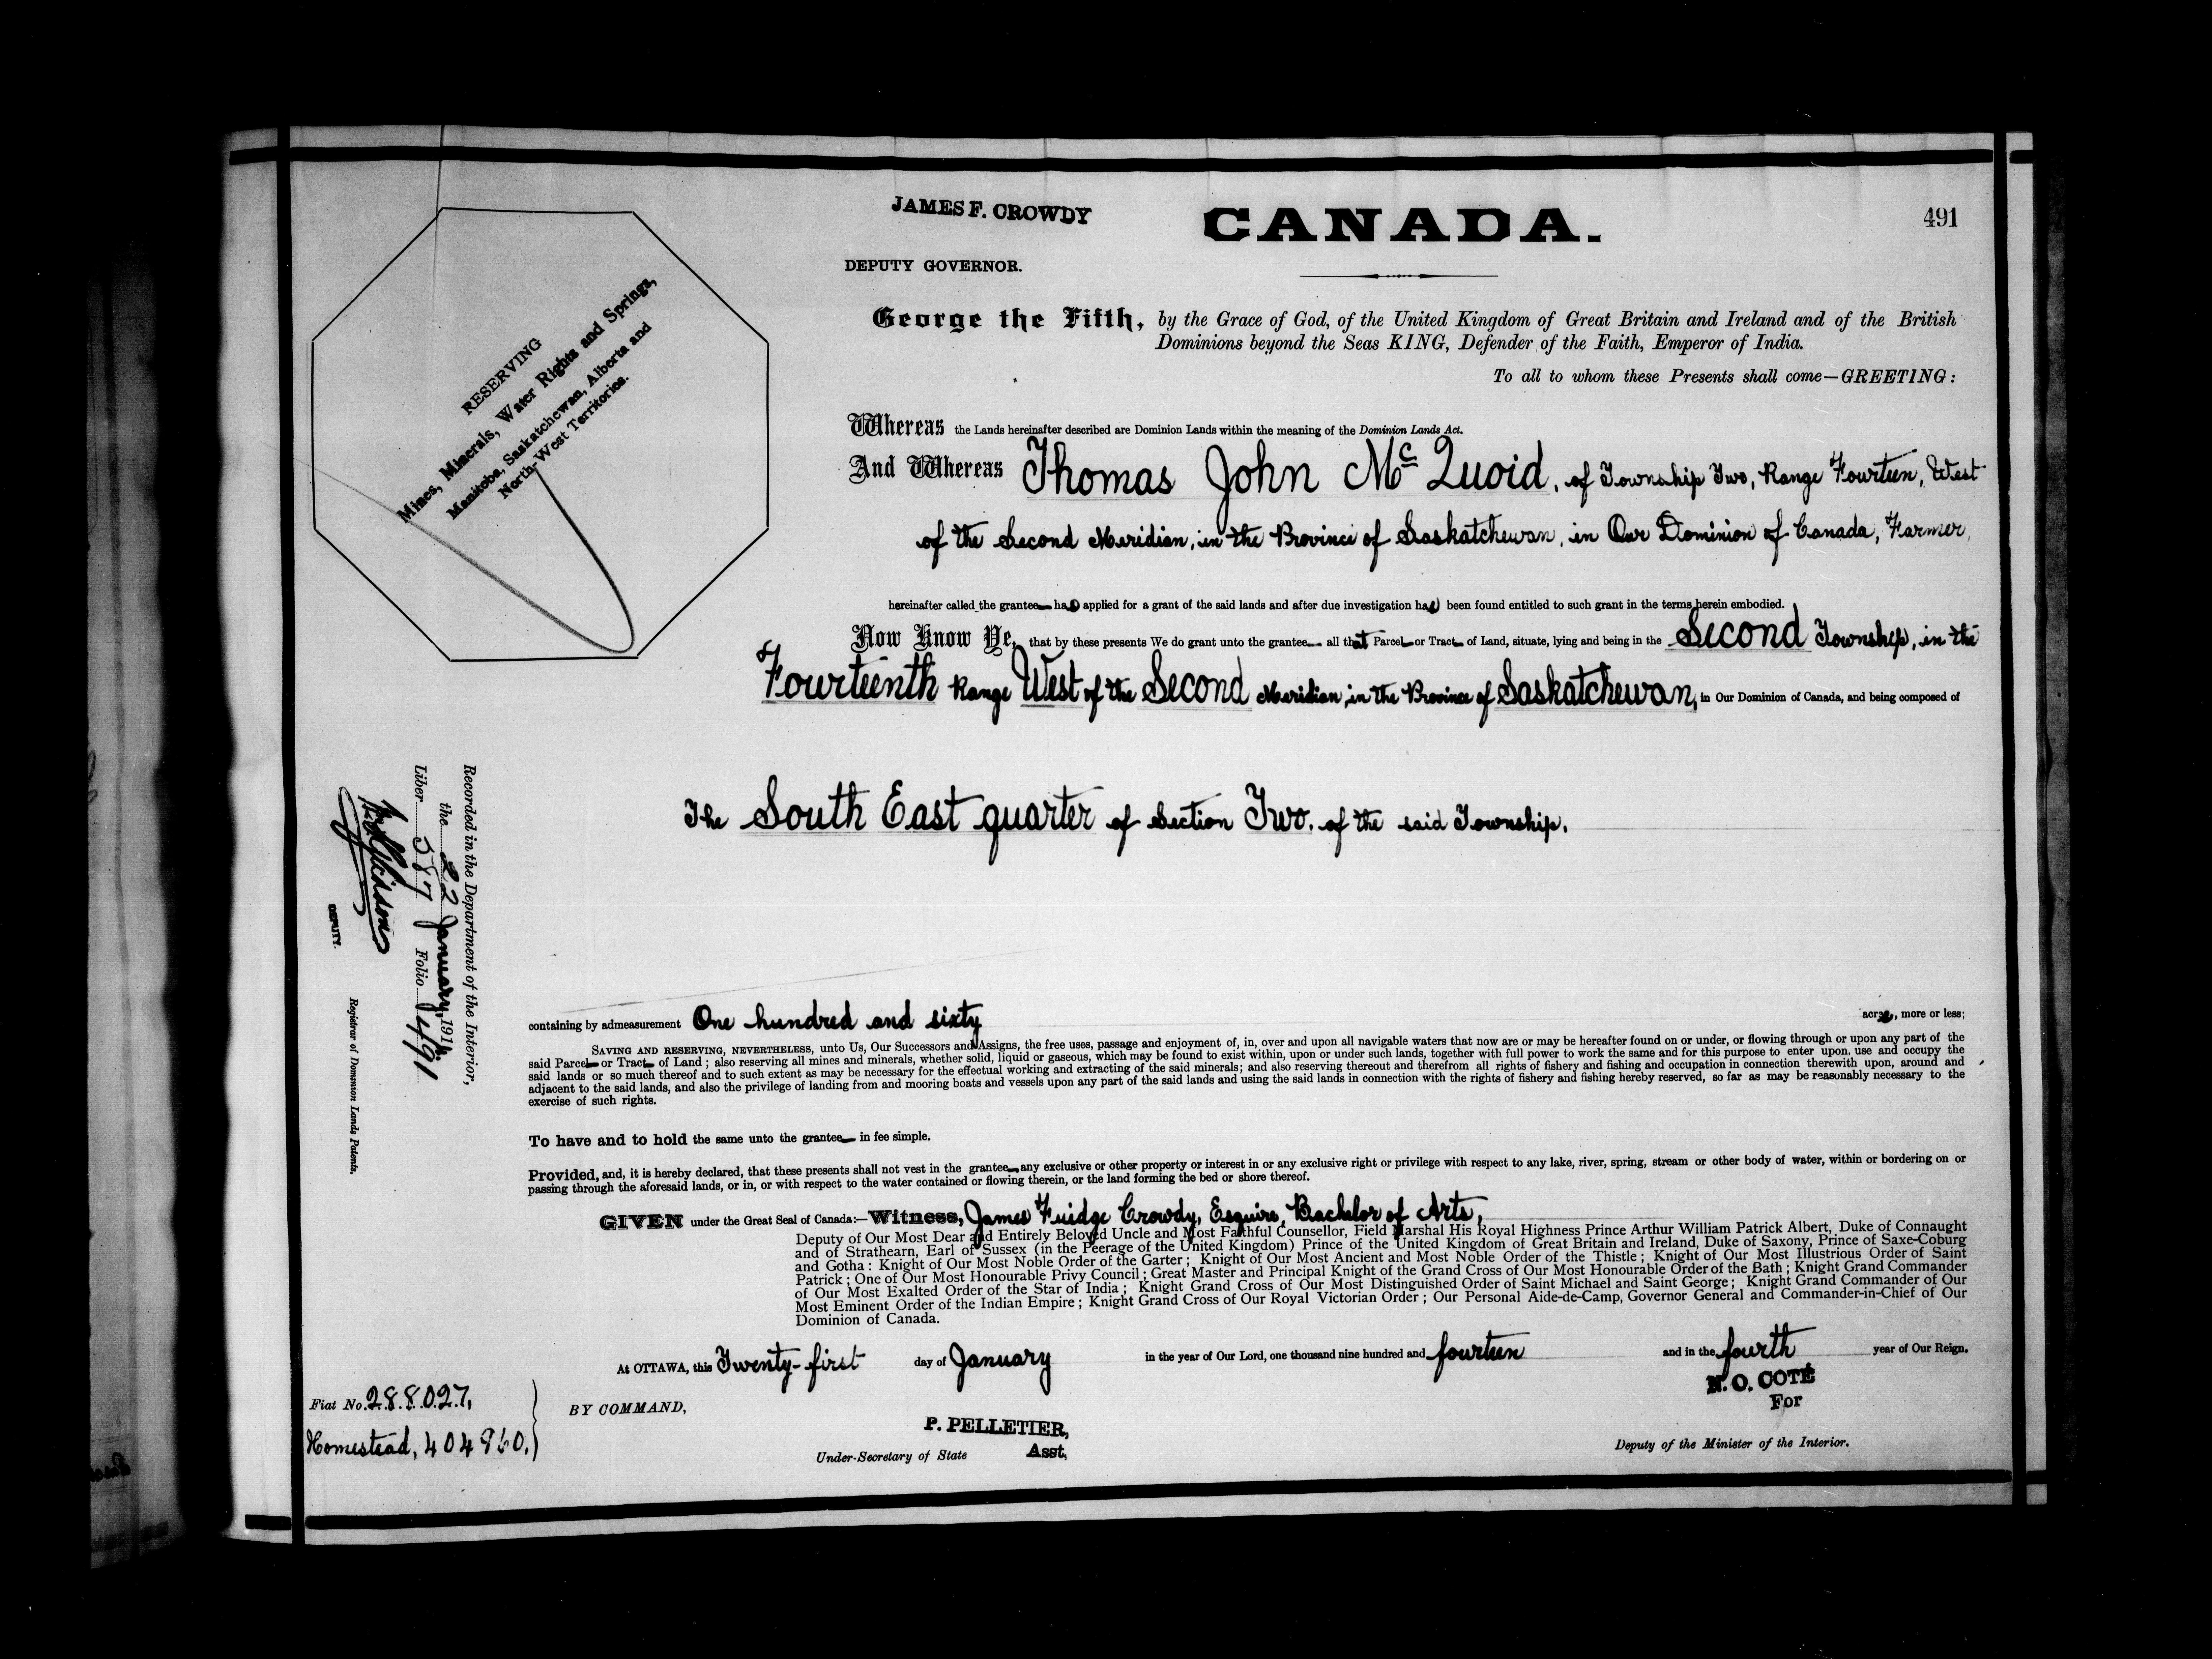 JAMES F. CROWDY
CANADA.
491
DEPUTY GOVERNOR.
RESERVING
Mines, Minerals, Water Rights and Springs,
Manitoba, Saskatchewan, Alberta and
North-West Territories.
George the Fifth, by the Grace of God, of the United Kingdom of Great Britain and Ireland and of the British
Dominions beyond the Seas KING, Defender of the Faith, Emperor of India.
To all to whom these Presents shall come—GREETING:
Whereas the Lands hereinafter described are Dominion Lands within the meaning of the Dominion Lands Act.
And Whereas Thomas John McQuoid, of Township Two, Range Fourteen, West
of the Second Meridian, in the Province of Saskatchewan, in Our Dominion of Canada, Farmer,
hereinafter called the grantee has applied for a grant of the said lands and after due investigation has been found entitled to such grant in the terms herein embodied.
Now Know Ye, that by these presents We do grant unto the grantee all that Parcel or Tract of Land, situate, lying and being in the Second Township, in the
Fourteenth Range West of the Second Meridian, in the Province of Saskatchewan, in Our Dominion of Canada, and being composed of
The South East quarter of Section Two, of the said Township.
Recorded in the Department of the Interior,
the 22 January, 1914
Liber 587 Folio 491
DEPUTY.
Registrar of Dominion Lands Patents.
containing by admeasurement One hundred and sixty acres, more or less;
SAVING AND RESERVING, NEVERTHELESS, unto Us, Our Successors and Assigns, the free uses, passage and enjoyment of, in, over and upon all navigable waters that now are or may be hereafter found on or under, or flowing through or upon any part of the
said Parcel or Tract of Land; also reserving all mines and minerals, whether solid, liquid or gaseous, which may be found to exist within, upon or under such lands, together with full power to work the same and for this purpose to enter upon, use and occupy the
said lands or so much thereof and to such extent as may be necessary for the effectual working and extracting of the said minerals; and also reserving thereout and therefrom all rights of fishery and fishing and occupation in connection therewith upon, around and
adjacent to the said lands, and also the privilege of landing from and mooring boats and vessels upon any part of the said lands and using the said lands in connection with the rights of fishery and fishing hereby reserved, so far as may be reasonably necessary to the
exercise of such rights.
To have and to hold the same unto the grantee in fee simple.
Provided, and, it is hereby declared, that these presents shall not vest in the grantee any exclusive or other property or interest in or any exclusive right or privilege with respect to any lake, river, spring, stream or other body of water, within or bordering on or
passing through the aforesaid lands, or in, or with respect to the water contained or flowing therein, or the land forming the bed or shore thereof.
GIVEN under the Great Seal of Canada:—Witness, James Fuidge Crowdy, Esquire, Bachelor of Arts,
Deputy of Our Most Dear and Entirely Beloved Uncle and Most Faithful Counsellor, Field Marshal His Royal Highness Prince Arthur William Patrick Albert, Duke of Connaught
and of Strathearn, Earl of Sussex (in the Peerage of the United Kingdom) Prince of the United Kingdom of Great Britain and Ireland, Duke of Saxony, Prince of Saxe-Coburg
and Gotha: Knight of Our Most Noble Order of the Garter; Knight of Our Most Ancient and Most Noble Order of the Thistle; Knight of Our Most Illustrious Order of Saint
Patrick; One of Our Most Honourable Privy Council; Great Master and Principal Knight of the Grand Cross of Our Most Honourable Order of the Bath; Knight Grand Commander
of Our Most Exalted Order of the Star of India; Knight Grand Cross of Our Most Distinguished Order of Saint Michael and Saint George; Knight Grand Commander of Our
Most Eminent Order of the Indian Empire; Knight Grand Cross of Our Royal Victorian Order; Our Personal Aide-de-Camp, Governor General and Commander-in-Chief of Our
Dominion of Canada.
At OTTAWA, this Twenty-first day of January in the year of Our Lord, one thousand nine hundred and fourteen and in the fourth year of Our Reign.
Fiat No. 288027,
Homestead, 404960,
BY COMMAND,
P. PELLETIER,
Under-Secretary of State Asst,
N. O. COTÉ
For
Deputy of the Minister of the Interior.